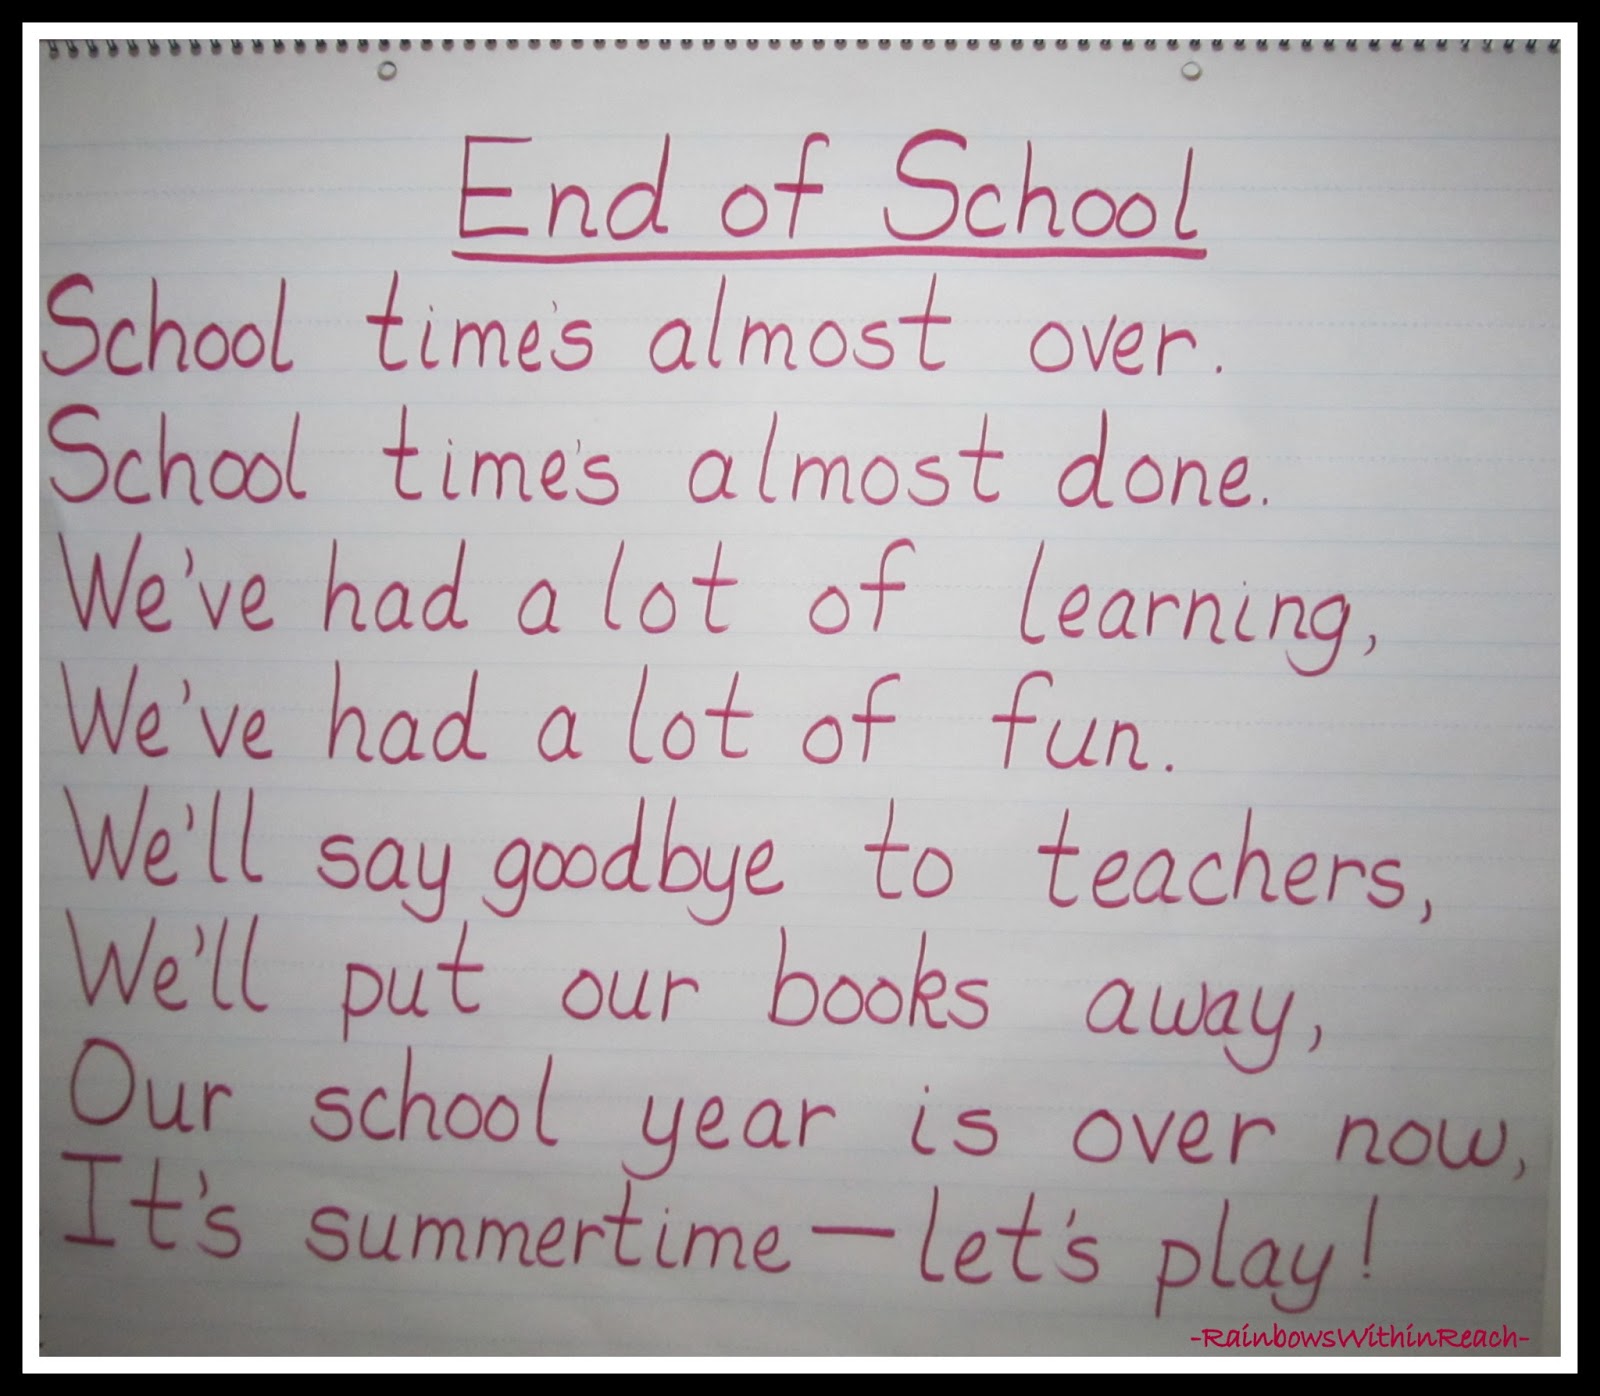 End of School
School time's almost over.
School time's almost done.
We've had a lot of learning,
We've had a lot of fun.
We'll say goodbye to teachers,
We'll put our books away,
Our school year is over now,
It's summertime — let's play!
-RainbowsWithinReach-